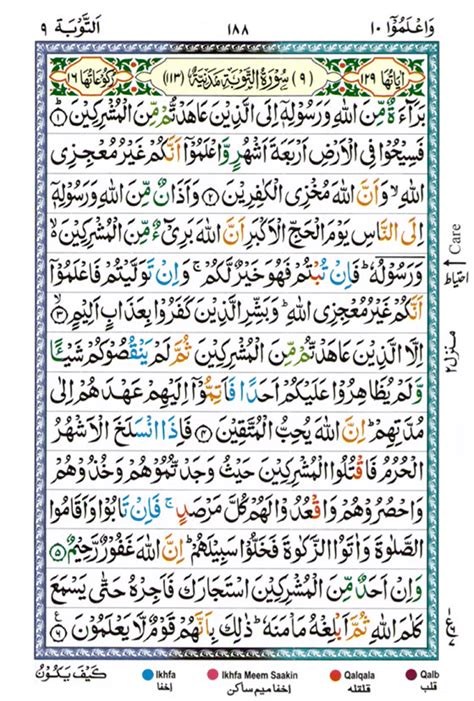 وَاعْلَمُوْٓا ١٠
١٨٨
اَلتَّوْبَة ٩
اٰیَاتُهَا ١٢٩
(٩) سُوْرَةُ التَّوْبَةِ مَدَنِیَّةٌ (١١٣)
رُكُوْعَاتُهَا ١٦
بَرَآءَةٌ مِّنَ اللّٰهِ وَرَسُوْلِهٖۤ اِلَى الَّذِیْنَ عَاهَدْتُّمْ مِّنَ الْمُشْرِكِیْنَ ۝١
فَسِیْحُوْا فِی الْاَرْضِ اَرْبَعَةَ اَشْهُرٍ وَّاعْلَمُوْۤا اَنَّكُمْ غَیْرُ مُعْجِزِی
اللّٰهِ ۙ وَاَنَّ اللّٰهَ مُخْزِی الْكٰفِرِیْنَ ۝٢ وَاَذَانٌ مِّنَ اللّٰهِ وَرَسُوْلِهٖۤ
اِلَى النَّاسِ یَوْمَ الْحَجِّ الْاَكْبَرِ اَنَّ اللّٰهَ بَرِیْٓءٌ مِّنَ الْمُشْرِكِیْنَ ۙ
وَرَسُوْلُهٗ ؕ فَاِنْ تُبْتُمْ فَهُوَ خَیْرٌ لَّكُمْ ۚ وَاِنْ تَوَلَّیْتُمْ فَاعْلَمُوْۤا
اَنَّكُمْ غَیْرُ مُعْجِزِی اللّٰهِ ؕ وَبَشِّرِ الَّذِیْنَ كَفَرُوْا بِعَذَابٍ اَلِیْمٍ ۝٣
اِلَّا الَّذِیْنَ عَاهَدْتُّمْ مِّنَ الْمُشْرِكِیْنَ ثُمَّ لَمْ یَنْقُصُوْكُمْ شَیْـًٔا
وَّلَمْ یُظَاهِرُوْا عَلَیْكُمْ اَحَدًا فَاَتِمُّوْۤا اِلَیْهِمْ عَهْدَهُمْ اِلٰى
مُدَّتِهِمْ ؕ اِنَّ اللّٰهَ یُحِبُّ الْمُتَّقِیْنَ ۝٤ فَاِذَا انْسَلَخَ الْاَشْهُرُ
الْحُرُمُ فَاقْتُلُوا الْمُشْرِكِیْنَ حَیْثُ وَجَدْتُّمُوْهُمْ وَخُذُوْهُمْ
وَاحْصُرُوْهُمْ وَاقْعُدُوْا لَهُمْ كُلَّ مَرْصَدٍ ۚ فَاِنْ تَابُوْا وَاَقَامُوا
الصَّلٰوةَ وَاٰتَوُا الزَّكٰوةَ فَخَلُّوْا سَبِیْلَهُمْ ؕ اِنَّ اللّٰهَ غَفُوْرٌ رَّحِیْمٌ ۝٥
وَاِنْ اَحَدٌ مِّنَ الْمُشْرِكِیْنَ اسْتَجَارَكَ فَاَجِرْهُ حَتّٰى یَسْمَعَ
كَلٰمَ اللّٰهِ ثُمَّ اَبْلِغْهُ مَاْمَنَهٗ ؕ ذٰلِكَ بِاَنَّهُمْ قَوْمٌ لَّا یَعْلَمُوْنَ ۝٦
Care
احتیاط
منزل٢
كَیْفَ یَكُوْنُ
Ikhfa
اخفا
Ikhfa Meem Saakin
اخفا میم ساکن
Qalqala
قلقلہ
Qalb
قلب